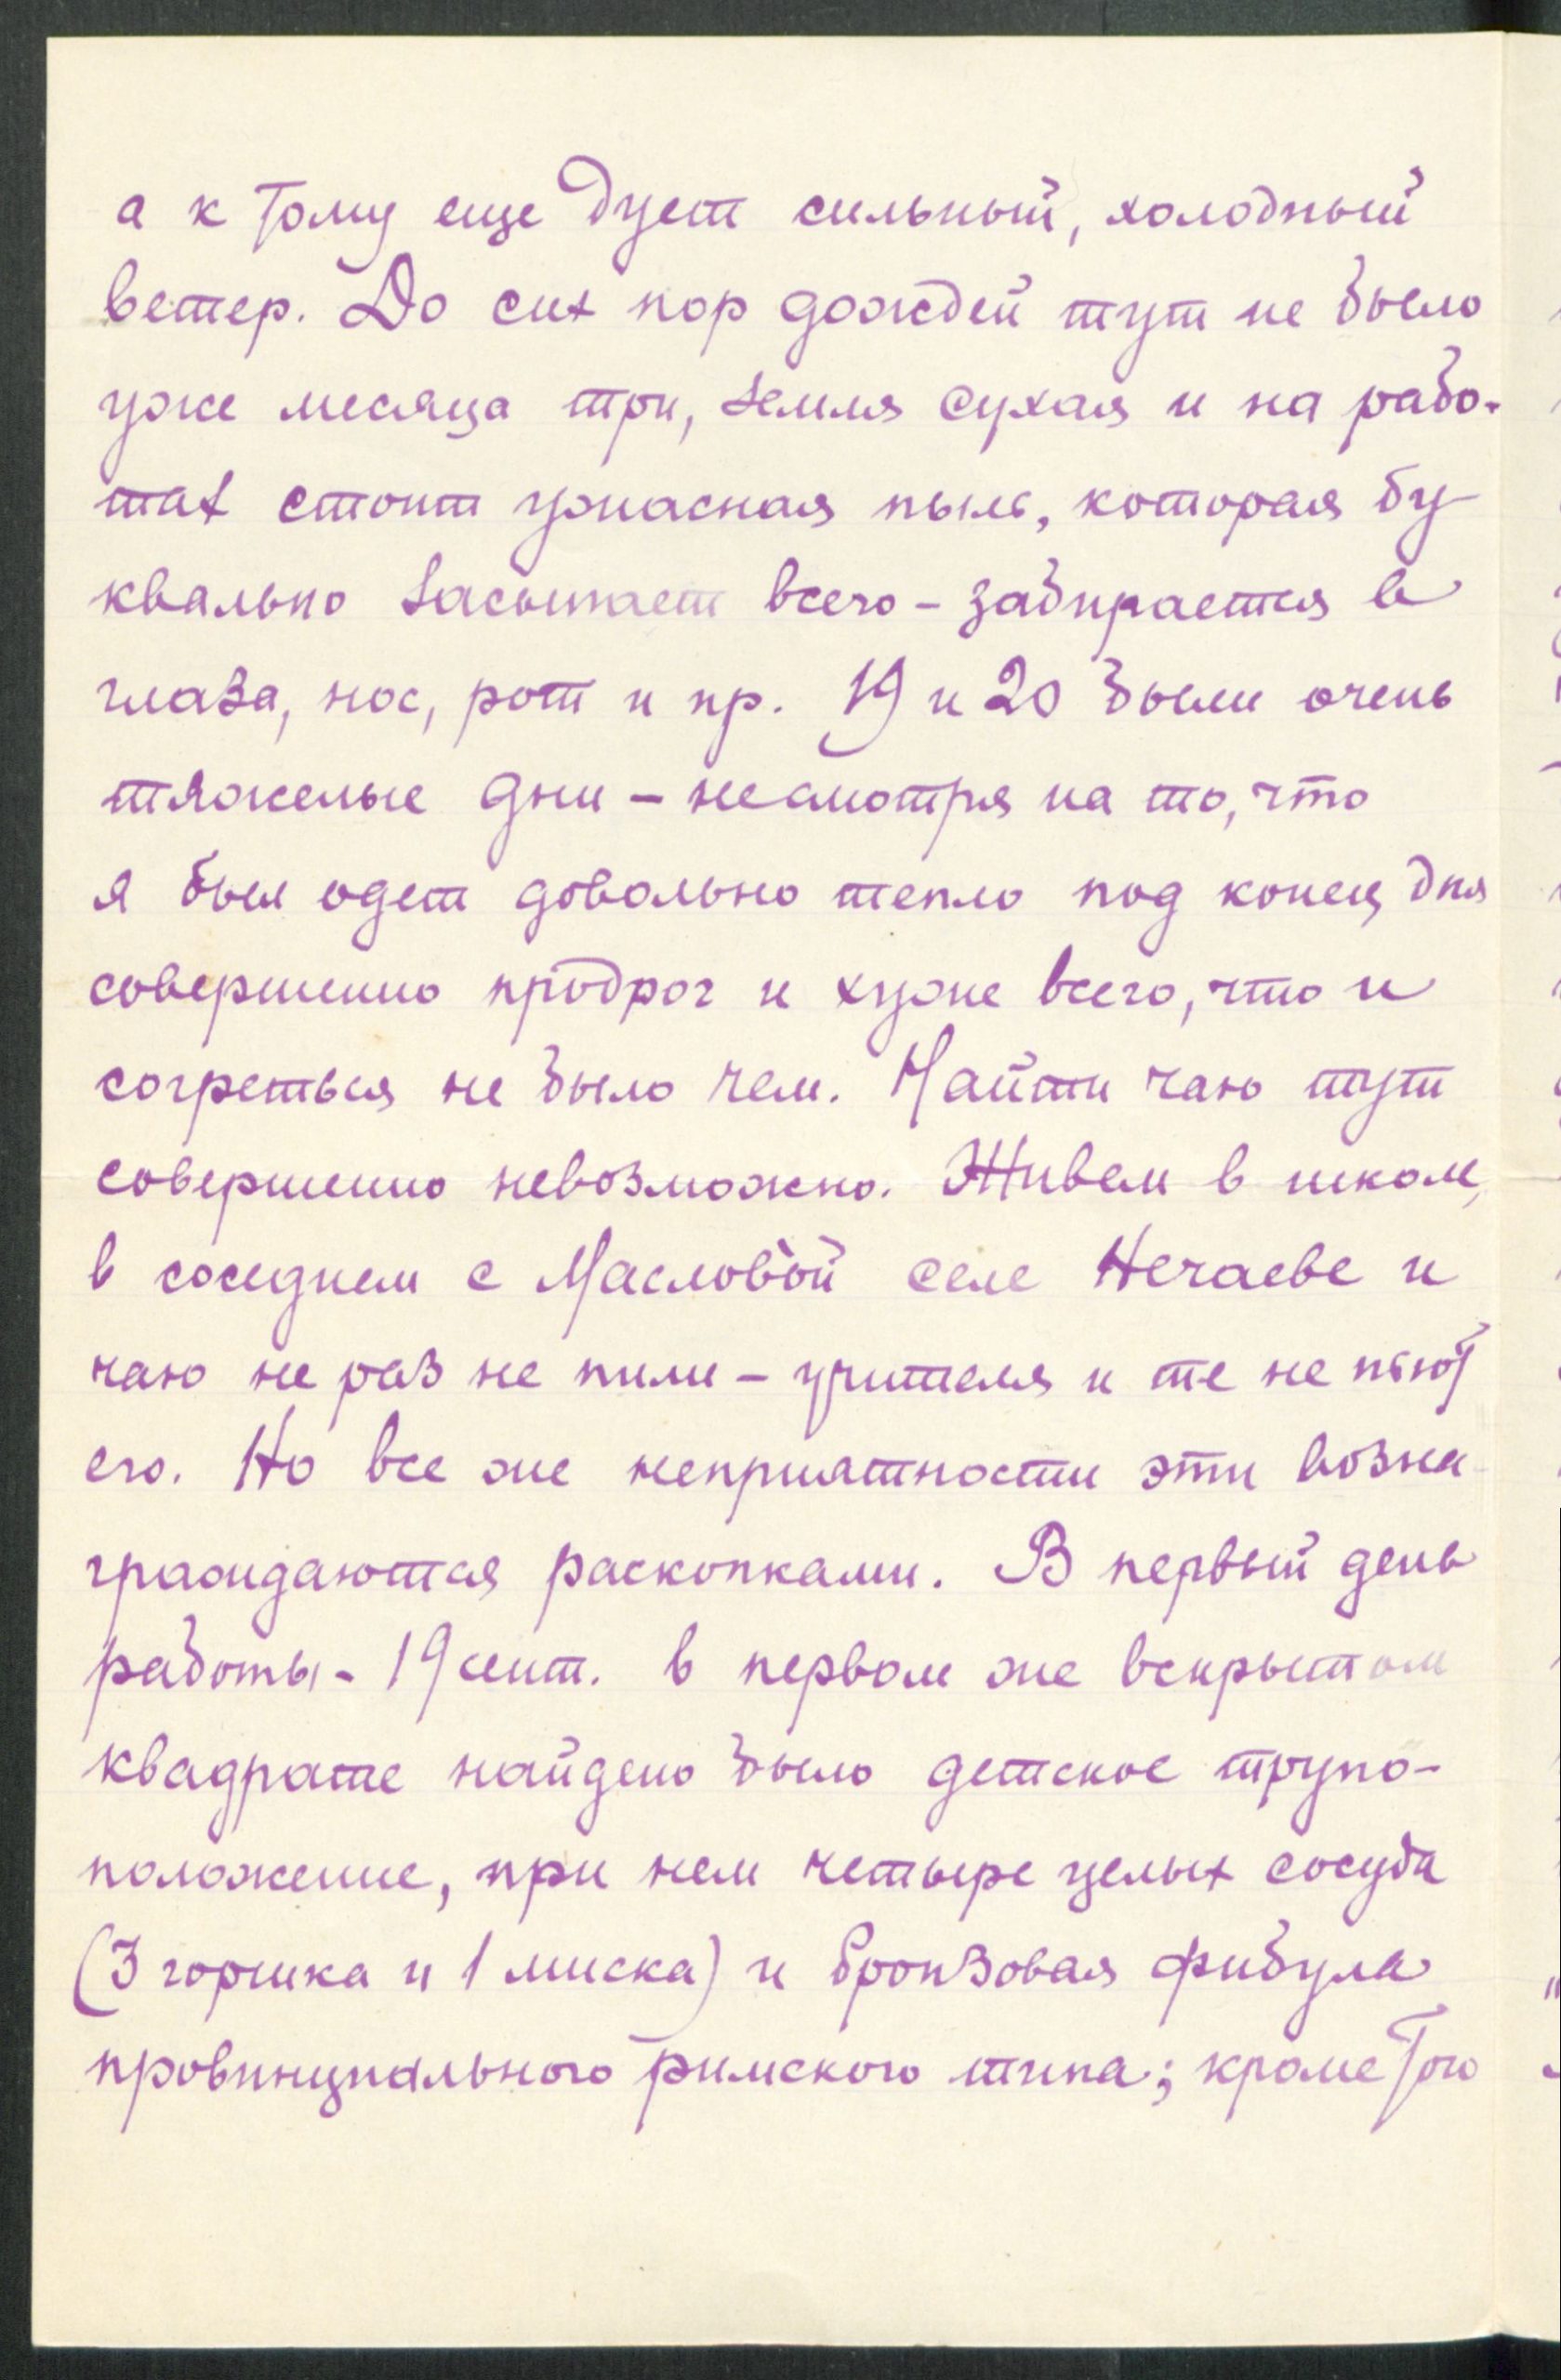 а к тому еще дует сильный, холодный
ветер. До сих пор дождей тут не было
уже месяца три, земля сухая и на рабо-
тах стоит ужасная пыль, которая бу-
квально засыпает всего - забирается в
глаза, нос, рот и пр. 19 и 20 были очень
тяжелые дни - несмотря на то, что
я был одет довольно тепло под конец дня
совершенно продрог и хуже всего, что и
согреться не было чем. Найти чаю тут
совершенно невозможно. Живем в школе,
в соседнем с Масловой селе Нечаеве и
чаю не раз не пили - учителя и те не пьют
его. Но все же неприятности эти возна-
граждаются раскопками. В первый день
работы - 19 сент. в первом же вскрытом
квадрате найдено было детское трупо-
положение, при нем четыре целых сосуда
(3 горшка и 1 миска) и бронзовая фибула
провинциального римского типа; кроме того